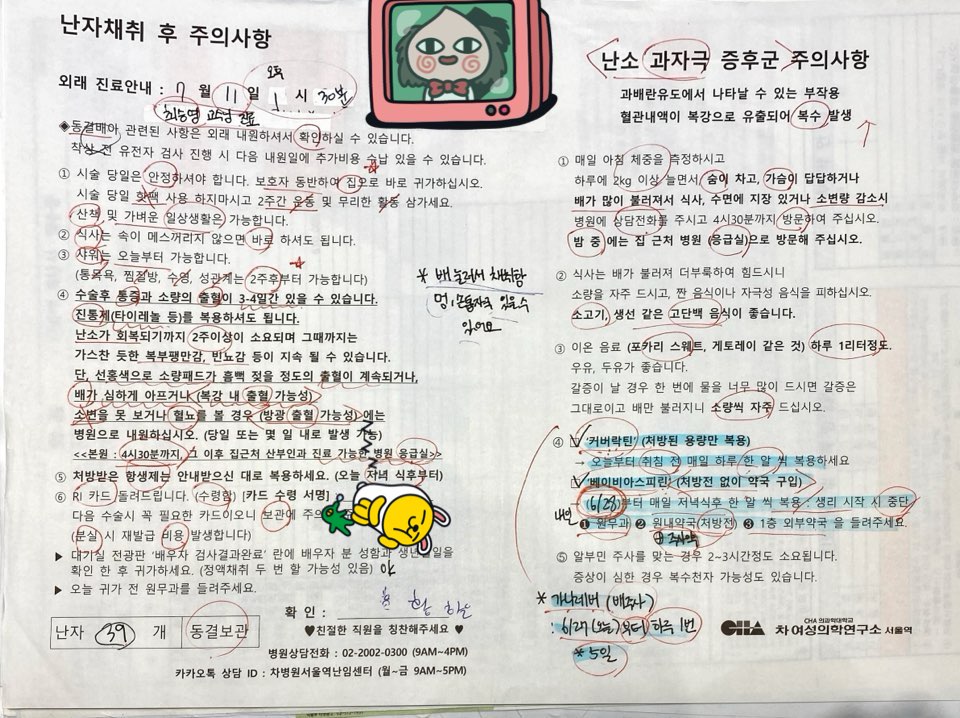 난자채취 후 주의사항
외래 진료안내 : 7 월 11 일 오후 1 시 30분
교수님 진료
◈동결배아 관련된 사항은 외래 내원하셔서 확인하실 수 있습니다.
착상 전 유전자 검사 진행 시 다음 내원일에 추가비용 수납 있을 수 있습니다.
① 시술 당일은 안정하셔야 합니다. 보호자 동반하여 집으로 바로 귀가하십시오.
시술 당일 핫팩 사용 하지마시고 2주간 운동 및 무리한 활동 삼가세요.
산책 및 가벼운 일상생활은 가능합니다.
② 식사는 속이 메스꺼리지 않으면 바로 하셔도 됩니다.
③ 샤워는 오늘부터 가능합니다.
(통목욕, 찜질방, 수영, 성관계는 2주후부터 가능합니다)
④ 수술후 통증과 소량의 출혈이 3-4일간 있을 수 있습니다.
진통제(타이레놀 등)를 복용하셔도 됩니다.
난소가 회복되기까지 2주이상이 소요되며 그때까지는
가스찬 듯한 복부팽만감, 빈뇨감 등이 지속 될 수 있습니다.
단, 선홍색으로 소량패드가 흠뻑 젖을 정도의 출혈이 계속되거나,
배가 심하게 아프거나 (복강 내 출혈 가능성)
소변을 못 보거나 혈뇨를 볼 경우 (방광 출혈 가능성)에는
병원으로 내원하십시오. (당일 또는 몇 일 내로 발생 가능)
<<본원 : 4시30분까지, 그 이후 집근처 산부인과 진료 가능한 병원 응급실>>
⑤ 처방받은 항생제는 안내받으신 대로 복용하세요. (오늘 저녁 식후부터)
⑥ RI 카드 돌려드립니다. (수령함) [카드 수령 서명]
다음 수술시 꼭 필요한 카드이오니 보관에 주의
(분실 시 재발급 비용 발생합니다)
▶ 대기실 전광판 '배우자 검사결과완료' 란에 배우자 분 성함과 생년월일을
확인 한 후 귀가하세요. (정액채취 두 번 할 가능성 있음)
▶ 오늘 귀가 전 원무과를 들려주세요.
확 인 :
난자 39 개 동결보관
♥친절한 직원을 칭찬해주세요 ♥
병원상담전화 : 02-2002-0300 (9AM~4PM)
카카오톡 상담 ID : 차병원서울역난임센터 (월~금 9AM~5PM)
* 배 눌러서 채취함
멍, 손톱자국 있을수
있어요
<난소 과자극 증후군> 주의사항
과배란유도에서 나타날 수 있는 부작용
혈관내액이 복강으로 유출되어 복수 발생
① 매일 아침 체중을 측정하시고
하루에 2kg 이상 늘면서 숨이 차고, 가슴이 답답하거나
배가 많이 불러져서 식사, 수면에 지장 있거나 소변량 감소시
병원에 상담전화를 주시고 4시30분까지 방문하여 주십시오.
밤 중에는 집 근처 병원 (응급실)으로 방문해 주십시오.
② 식사는 배가 불러져 더부룩하여 힘드시니
소량을 자주 드시고, 짠 음식이나 자극성 음식을 피하십시오.
소고기, 생선 같은 고단백 음식이 좋습니다.
③ 이온 음료 (포카리 스웨트, 게토레이 같은 것) 하루 1리터정도.
우유, 두유가 좋습니다.
갈증이 날 경우 한 번에 물을 너무 많이 드시면 갈증은
그대로이고 배만 불러지니 소량씩 자주 드십시오.
④ '커버락틴' (처방된 용량만 복용)
→ 오늘부터 취침 전 매일 하루 한 알 씩 복용하세요
'베이비아스피린' (처방전 없이 약국 구입)
(6/28)부터 매일 저녁식후 한 알 씩 복용 : 생리 시작 시 중단
내일 ❶ 원무과 ❷ 원내약국(처방전) ❸ 1층 외부약국 을 들려주세요.
주사약
⑤ 알부민 주사를 맞는 경우 2~3시간정도 소요됩니다.
증상이 심한 경우 복수천자 가능성도 있습니다.
* 가니레버 (배주사)
: 6/27 (오늘)부터 하루 1번
* 5일
CHA 의과학대학교
CHA 차 여성의학연구소 서울역